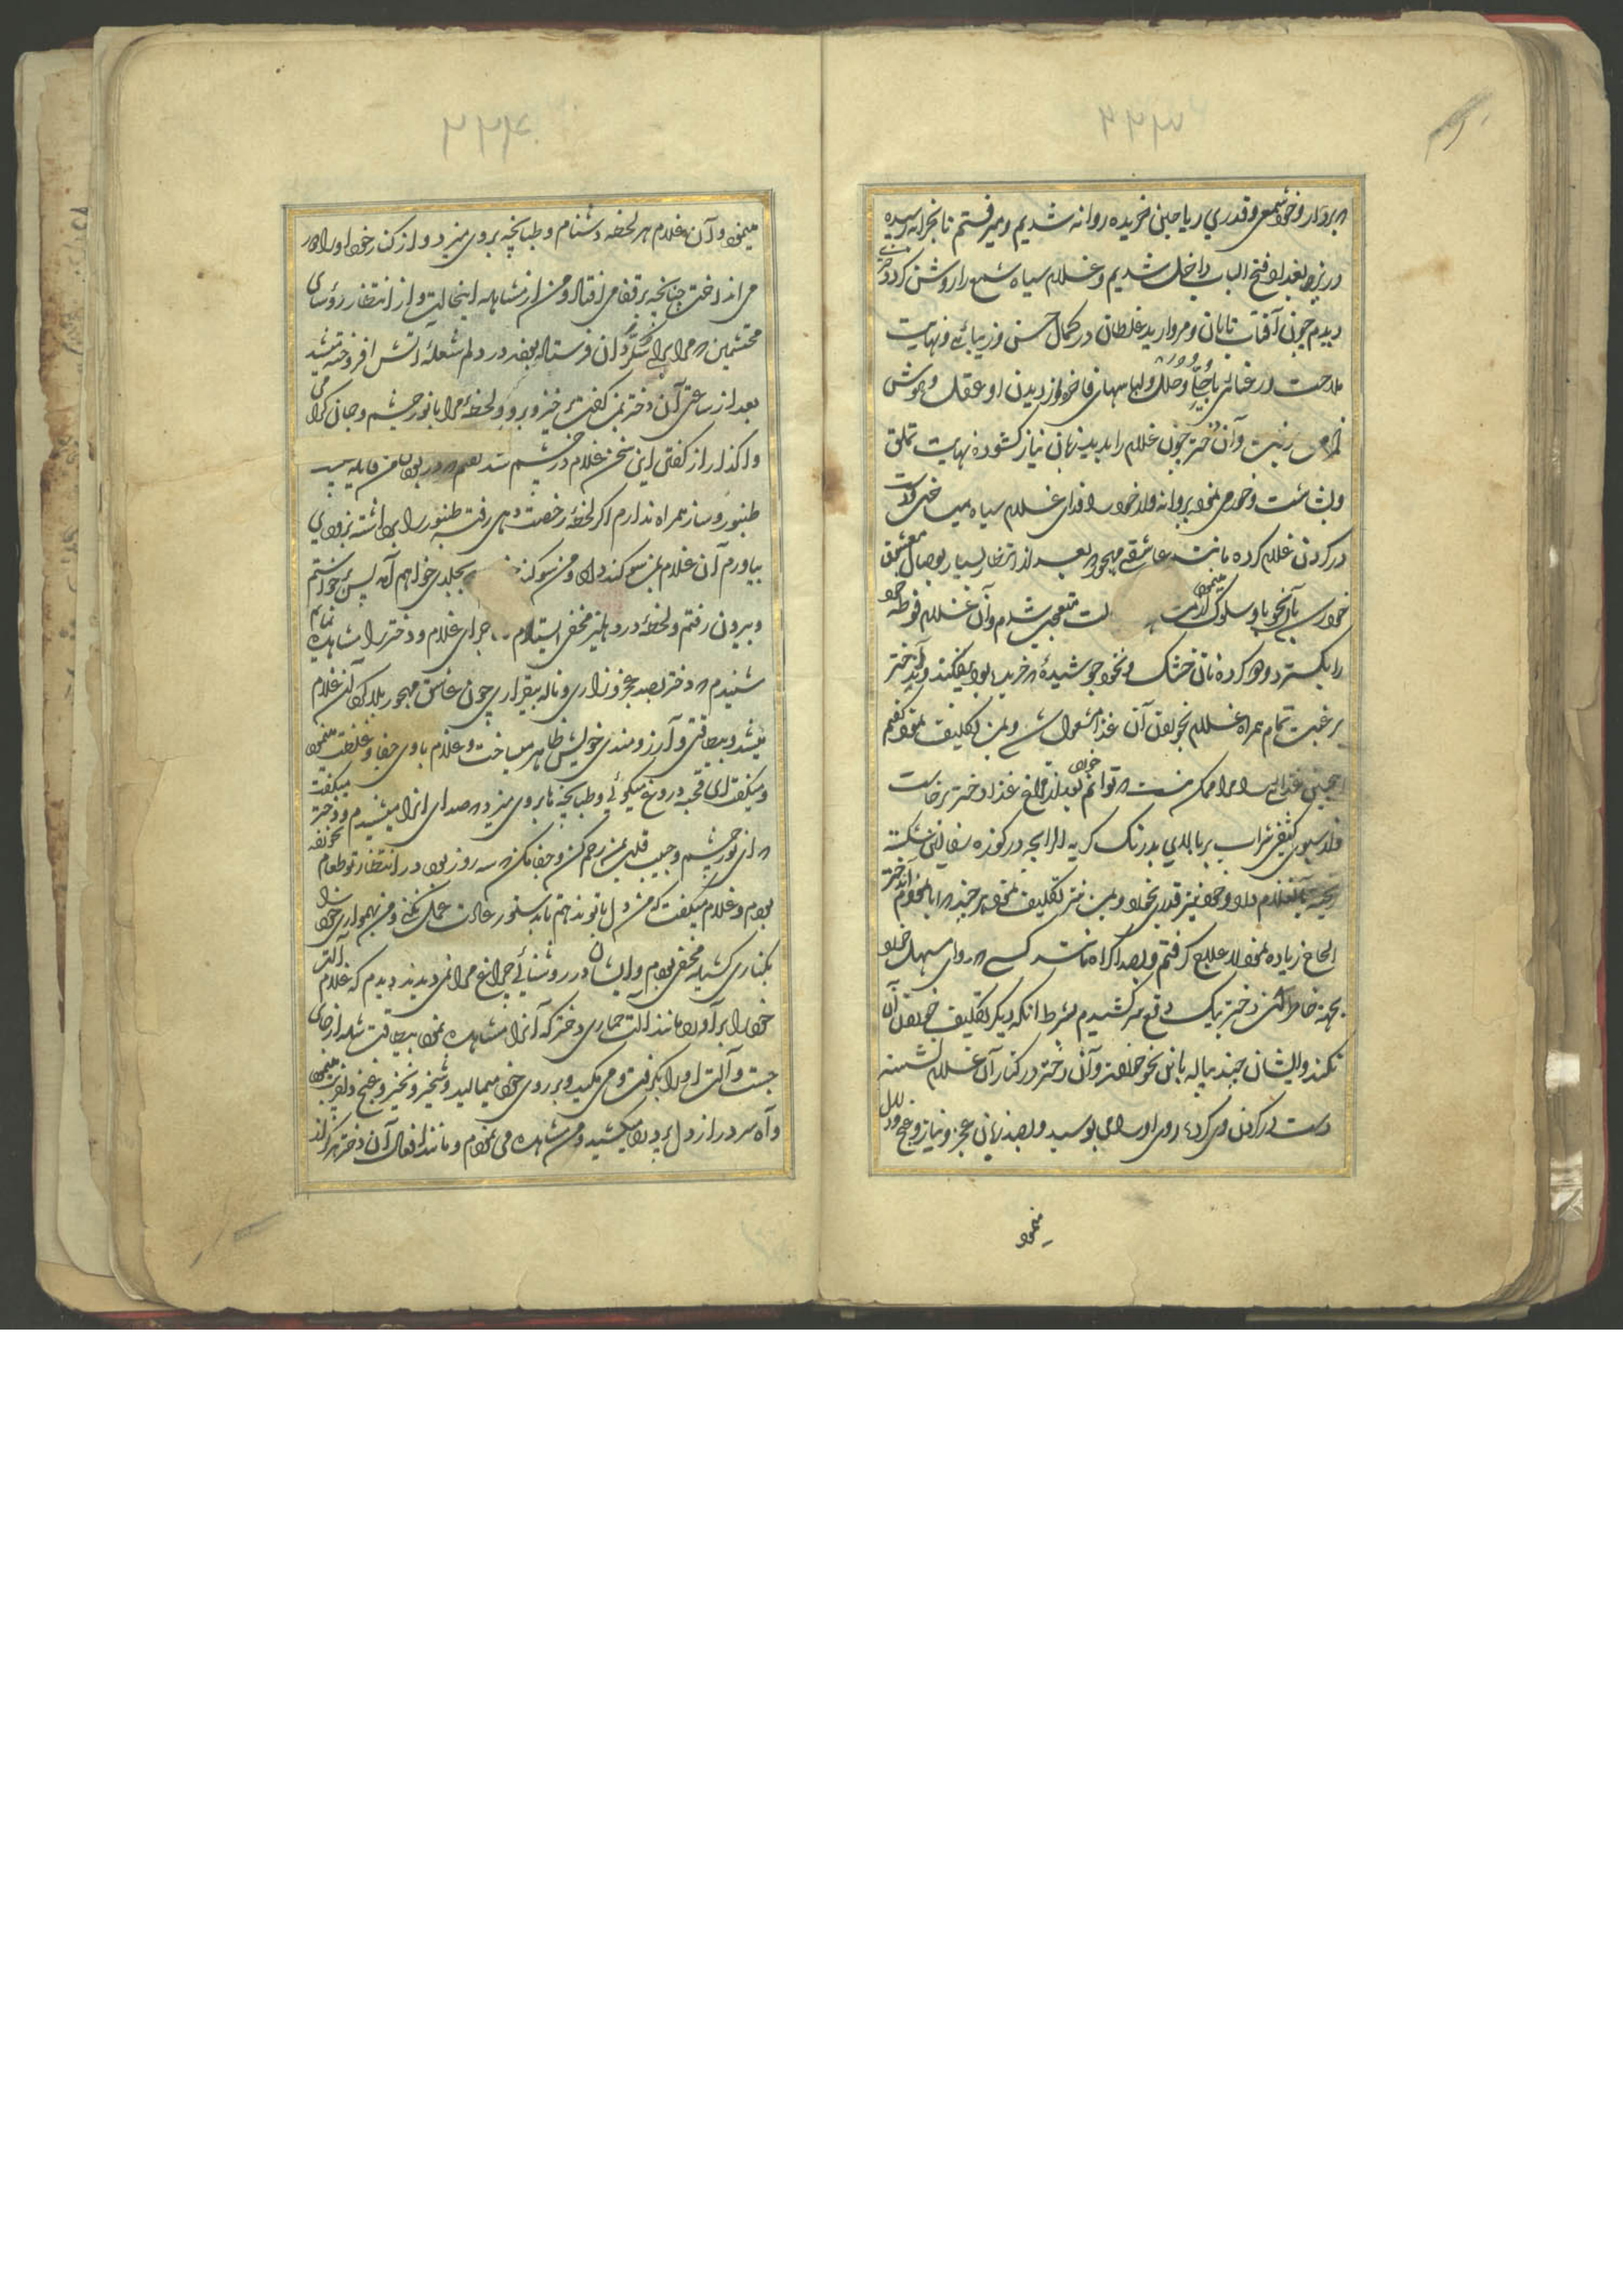 بردار و خود شمع و قدری ریاحین خریده روانه شدیم و میرفتم تا بخرابه رسیده
در بزد بعد از فتح الباب داخل شدیم و غلام سیاه شمع را روشن کرد
دیدم چون آفتاب تابان و مروارید غلطان در کمال حسن و زیبائی و نهایت
ملاحت و رعنائی با حلی و حلل و لباسهای فاخره از دیدن او عقل و هوش
از من برفت و آن دختر چون غلام را بدید زبان نیاز کشوده نهایت تملق
و بشاشت و خرمی نمود پروانه وار خود را فدای غلام سیاه میساخت و دست
در کردن غلام کرده مانند عاشقی مهجور بعد از انتظار بسیار بوصال معشوق
خود رسد بآن نحو با او سلوک مینمود متعجب شدم و آن غلام فوطه خود
را بکسترد و کرده نان خشک و نخود جوشیده خریده بود بیفکند و آندختر
برغبت تمام همراه غلام بخوردن آن غذا مشغول شد و بمن تکلیف نمود کفتم
چنین غذائی مرا ممکن نیست توانم خورد بعد از فراغ غذا دختر برخاست
و از سبوی کثیفی شراب بدرنک کریه الرایحه در کوزه سفالین شکسته
ریخته بآنغلام داد و خود نیز قدری بخورد و بمن نیز تکلیف نمود هر چند ابا نمودم آندختر
الحاح زیاده نمود لاعلاج کرفتم و بصد اکراه مانند کسی که دوای مسهل خورد
بجهة خاطر آن دختر یک قدح سر کشیدم بشرط آنکه دیکر تکلیف خوردن آن
نکند و ایشان چند پیاله باین نحو خوردند و آن دختر در کنار آن غلام نشسته
دست در کردن وی کرده روی او را می بوسید و بصد زبان عجز و نیاز و غنج و دلال
مینمود
مینمود و آن غلام هر لحظه دشنام و طبانچه بروی میزد و از کنار خود او را دور
می انداخت چنانچه بر قفا می افتاد و من از مشاهده اینحالت و از انتظار رؤسای
محتشمین که مرا برای شکر دان فرستاده بودند در دلم شعلهٔ آتش افروخته میشد
بعد از ساعتی آن دختر بمن کفت برخیز و برو و لحظهٔ مرا با نور چشم و جان کرامی
واکذار از کفتن این سخن غلام در خشم شد
طنبور و ساز همراه ندارم اکر لحظهٔ رخصت دهی رفته طنبور را برداشته بزودی
بیاورم آن غلام بمن سوکند داد و من سوکند بجلدی خواهم آمد پس برخواستم
و بیرون رفتم و لحظهٔ در دهلیز مخفی ایستادم ماجرای غلام و دختر را مشاهده نمایم
شنیدم که دختر بصد عجز و زاری و ناله بیقراری چون عاشق مهجور بلاکردان غلام
میشد و بیطاقتی و آرزومندی خویش ظاهر میساخت و غلام با وی جفا و غلظت مینمود
و میکفت ای قحبه دروغ میکوئی و طبانچه ها بروی میزد که صدای آنرا میشنیدم و دختر میکفت
که ای نور چشم و حبیب قلب بمن رحم کن و جفا مکن که سه روز بود در انتظار تو طعام نخورده
بودم و غلام میکفت که من دل با تو ندهم تا بدستور عادت عمل نکنی و من بهمواری خود را
بکناری کشیده مخفی بودم و ایشان در روشنائی چراغ مرا نمی دیدند دیدم که غلام آلت
خود را برآورد مانند آلت حماری دختر که آنرا مشاهده نمود بیطاقت شده از جای
جست و آلت او را بکرفت و می مکید و بر روی خود میمالید و شخیر و نخیر و غنج و دلال مینمود
و آه سرد از دل پردرد میکشید و من مشاهده می نمودم و مانند افعال آن دختر هرکز از